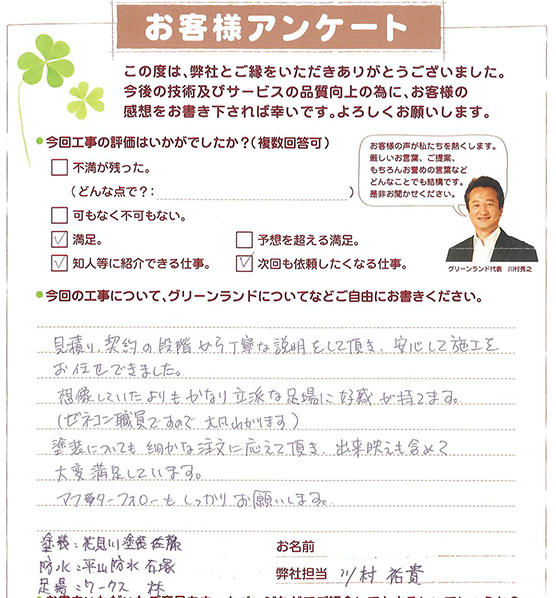 お客様アンケート
この度は、弊社とご縁をいただきありがとうございました。
今後の技術及びサービスの品質向上の為に、お客様の
感想をお書き下されば幸いです。よろしくお願いします。
今回工事の評価はいかがでしたか?(複数回答可)
不満が残った。
(どんな点で?: )
可もなく不可もない。
満足。
予想を超える満足。
知人等に紹介できる仕事。
次回も依頼したくなる仕事。
お客様の声が私たちを熱くします。
厳しいお言葉、ご提案、
もちろんお誉めの言葉など
どんなことでも結構です。
是非お聞かせください。
グリーンランド代表 川村秀之
今回の工事について、グリーンランドについてなどご自由にお書きください。
見積り、契約の段階から丁寧な説明をして頂き、安心して施工を
お任せできました。
想像していたよりもかなり立派な足場に好感が持てます。
(ゼネコン職員ですので 大凡わかります)
塗装についても 細かな注文に応えて頂き、出来映えも含めて
大変満足しています。
アフターフォローも しっかり お願いします。
塗装:花見川塗装 佐藤
防水:平山防水 石塚
足場:ワークス 林
お名前
弊社担当 川村 祐貴